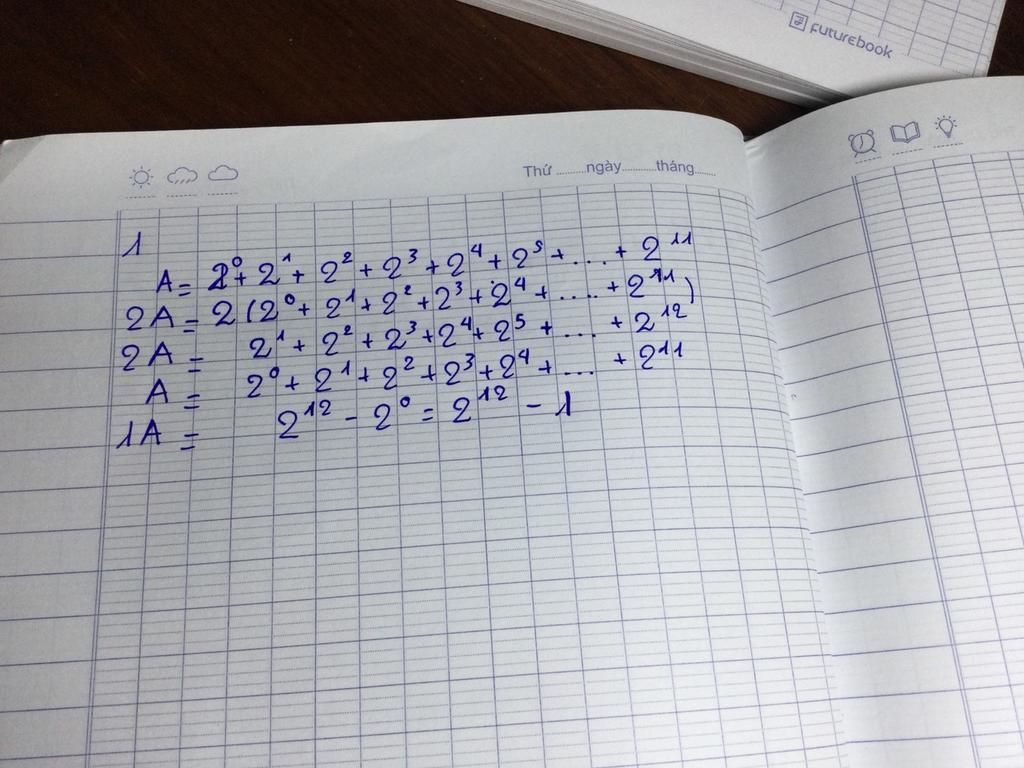 Futurebook
Thứ ........ngày...........tháng......
1
A = 2⁰ + 2¹ + 2² + 2³ + 2⁴ + 2⁵ + .... + 2¹¹
2A = 2(2⁰ + 2¹ + 2² + 2³ + 2⁴ + .... + 2¹¹)
2A = 2¹ + 2² + 2³ + 2⁴ + 2⁵ + .... + 2¹²
A = 2⁰ + 2¹ + 2² + 2³ + 2⁴ + .... + 2¹¹
1A = 2¹² - 2⁰ = 2¹² - 1